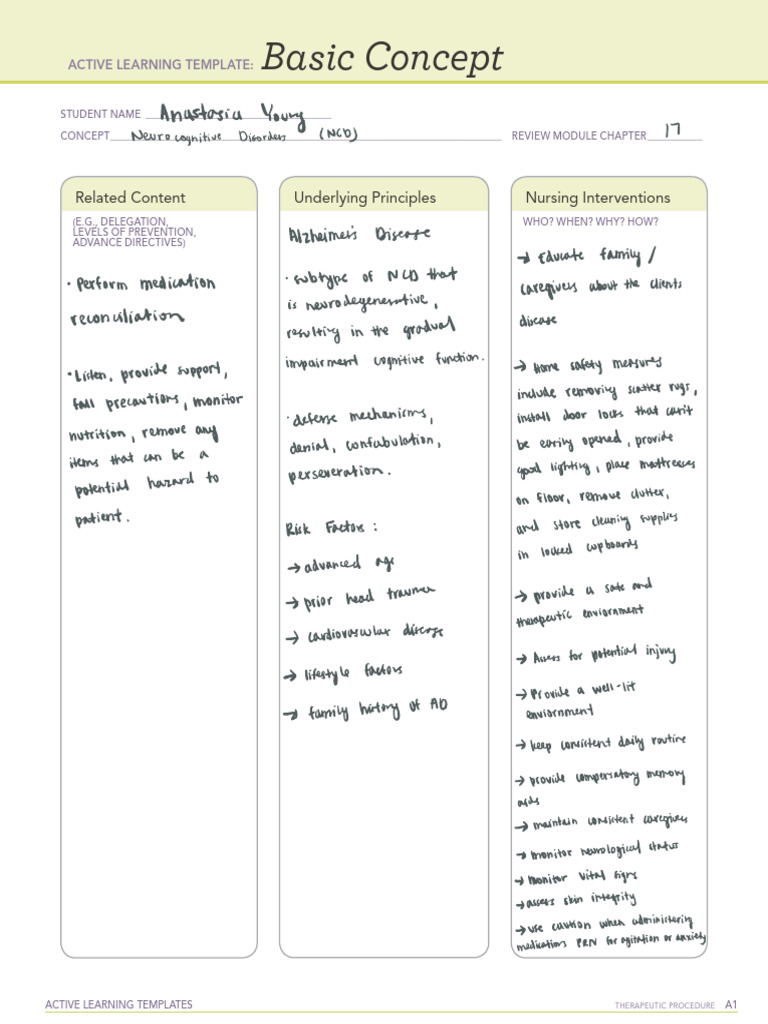 ACTIVE LEARNING TEMPLATE: Basic Concept
STUDENT NAME Anastasia Young
CONCEPT Neurocognitive Disorders (NCD) REVIEW MODULE CHAPTER 17
Related Content
(E.G., DELEGATION,
LEVELS OF PREVENTION,
ADVANCE DIRECTIVES)
· Perform medication
reconciliation
· Listen, provide support,
fall precautions, monitor
nutrition, remove any
items that can be a
potential hazard to
patient.
Underlying Principles
Alzheimer's Disease
· subtype of NCD that
is neurodegenerative,
resulting in the gradual
impairment cognitive function.
· defense mechanisms,
denial, confabulation,
perseveration.
Risk Factors:
→ advanced age
→ prior head trauma
→ cardiovascular disease
→ lifestyle factors
→ family history of AD
Nursing Interventions
WHO? WHEN? WHY? HOW?
→ Educate family/
caregivers about the clients
disease
→ Home safety measures
include removing scatter rugs,
install door locks that can't
be easily opened, provide
good lighting, place mattresses
on floor, remove clutter,
and store cleaning supplies
in locked cupboards
→ provide a safe and
therapeutic enviornment
→ Assess for potential injury
→ Provide a well-lit
enviornment
→ keep consistent daily routine
→ provide compensatory memory
aids
→ maintain consistent caregivers
→ monitor neurological status
→ Monitor vital signs
→ assess skin integrity
→ use caution when administering
medications PRN for agitation or anxiety
ACTIVE LEARNING TEMPLATES THERAPEUTIC PROCEDURE A1